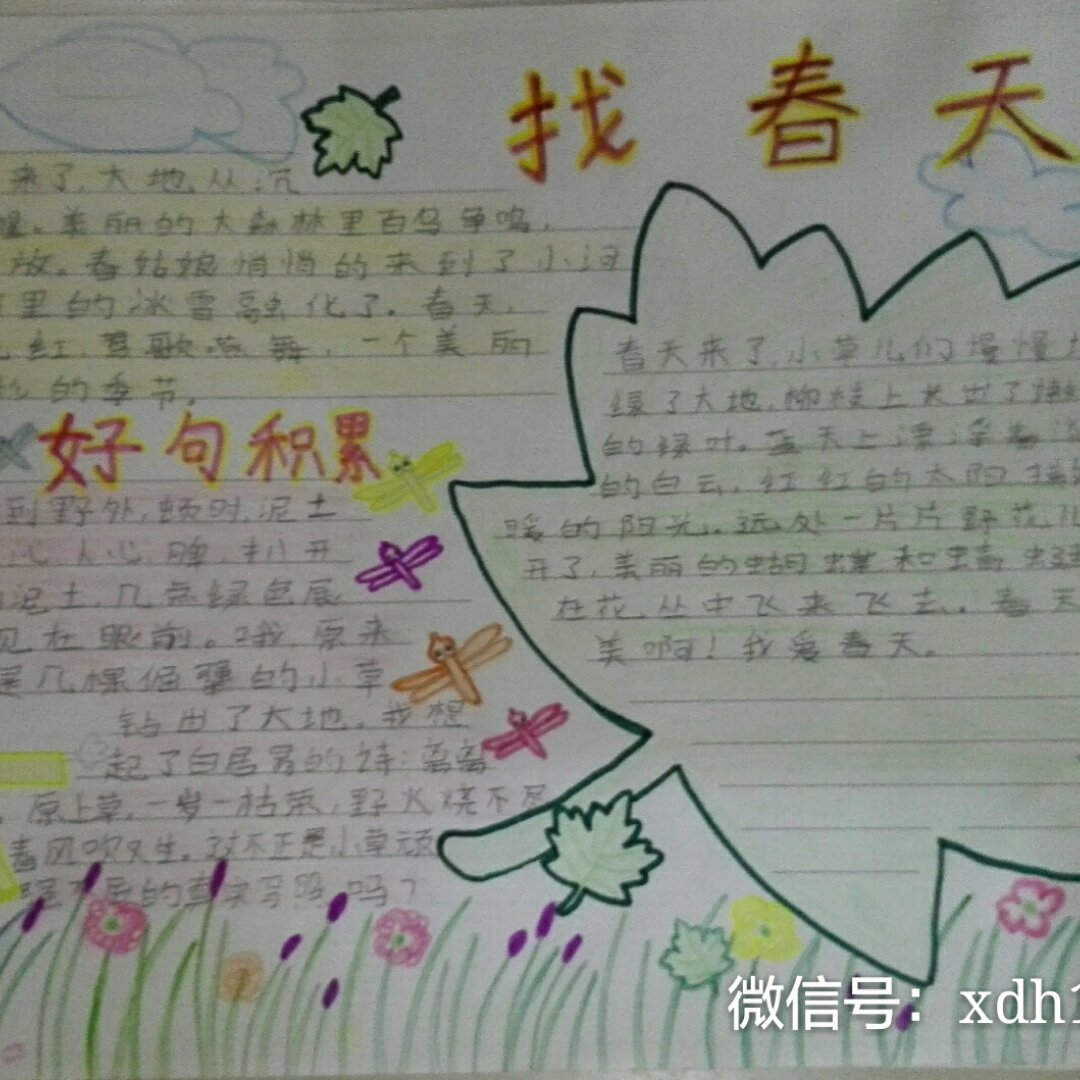 找春天
来了,大地从沉
醒。美丽的大森林里百鸟争鸣,
放。春姑娘悄悄的来到了小河
里的冰雪融化了。春天,
红,莺歌燕舞,一个美丽
的季节。
好句积累
到野外,顿时,泥土
沁人心脾,扒开
泥土,几点绿色展
现在眼前。哦,原来
是几棵倔犟的小草
钻出了大地。我想
起了白居易的诗:离离
原上草,一岁一枯荣,野火烧不尽
春风吹又生。这不正是小草顽
的真实写照吗?
春天来了,小草儿们慢慢
绿了大地,柳枝上长出了嫩
的绿叶。蓝天上漂浮着
的白云,红红的太阳
暖的阳光。远处一片片野花儿
开了,美丽的蝴蝶和蜻
在花丛中飞来飞去。春天
美啊!我爱春天。
微信号:xdh1